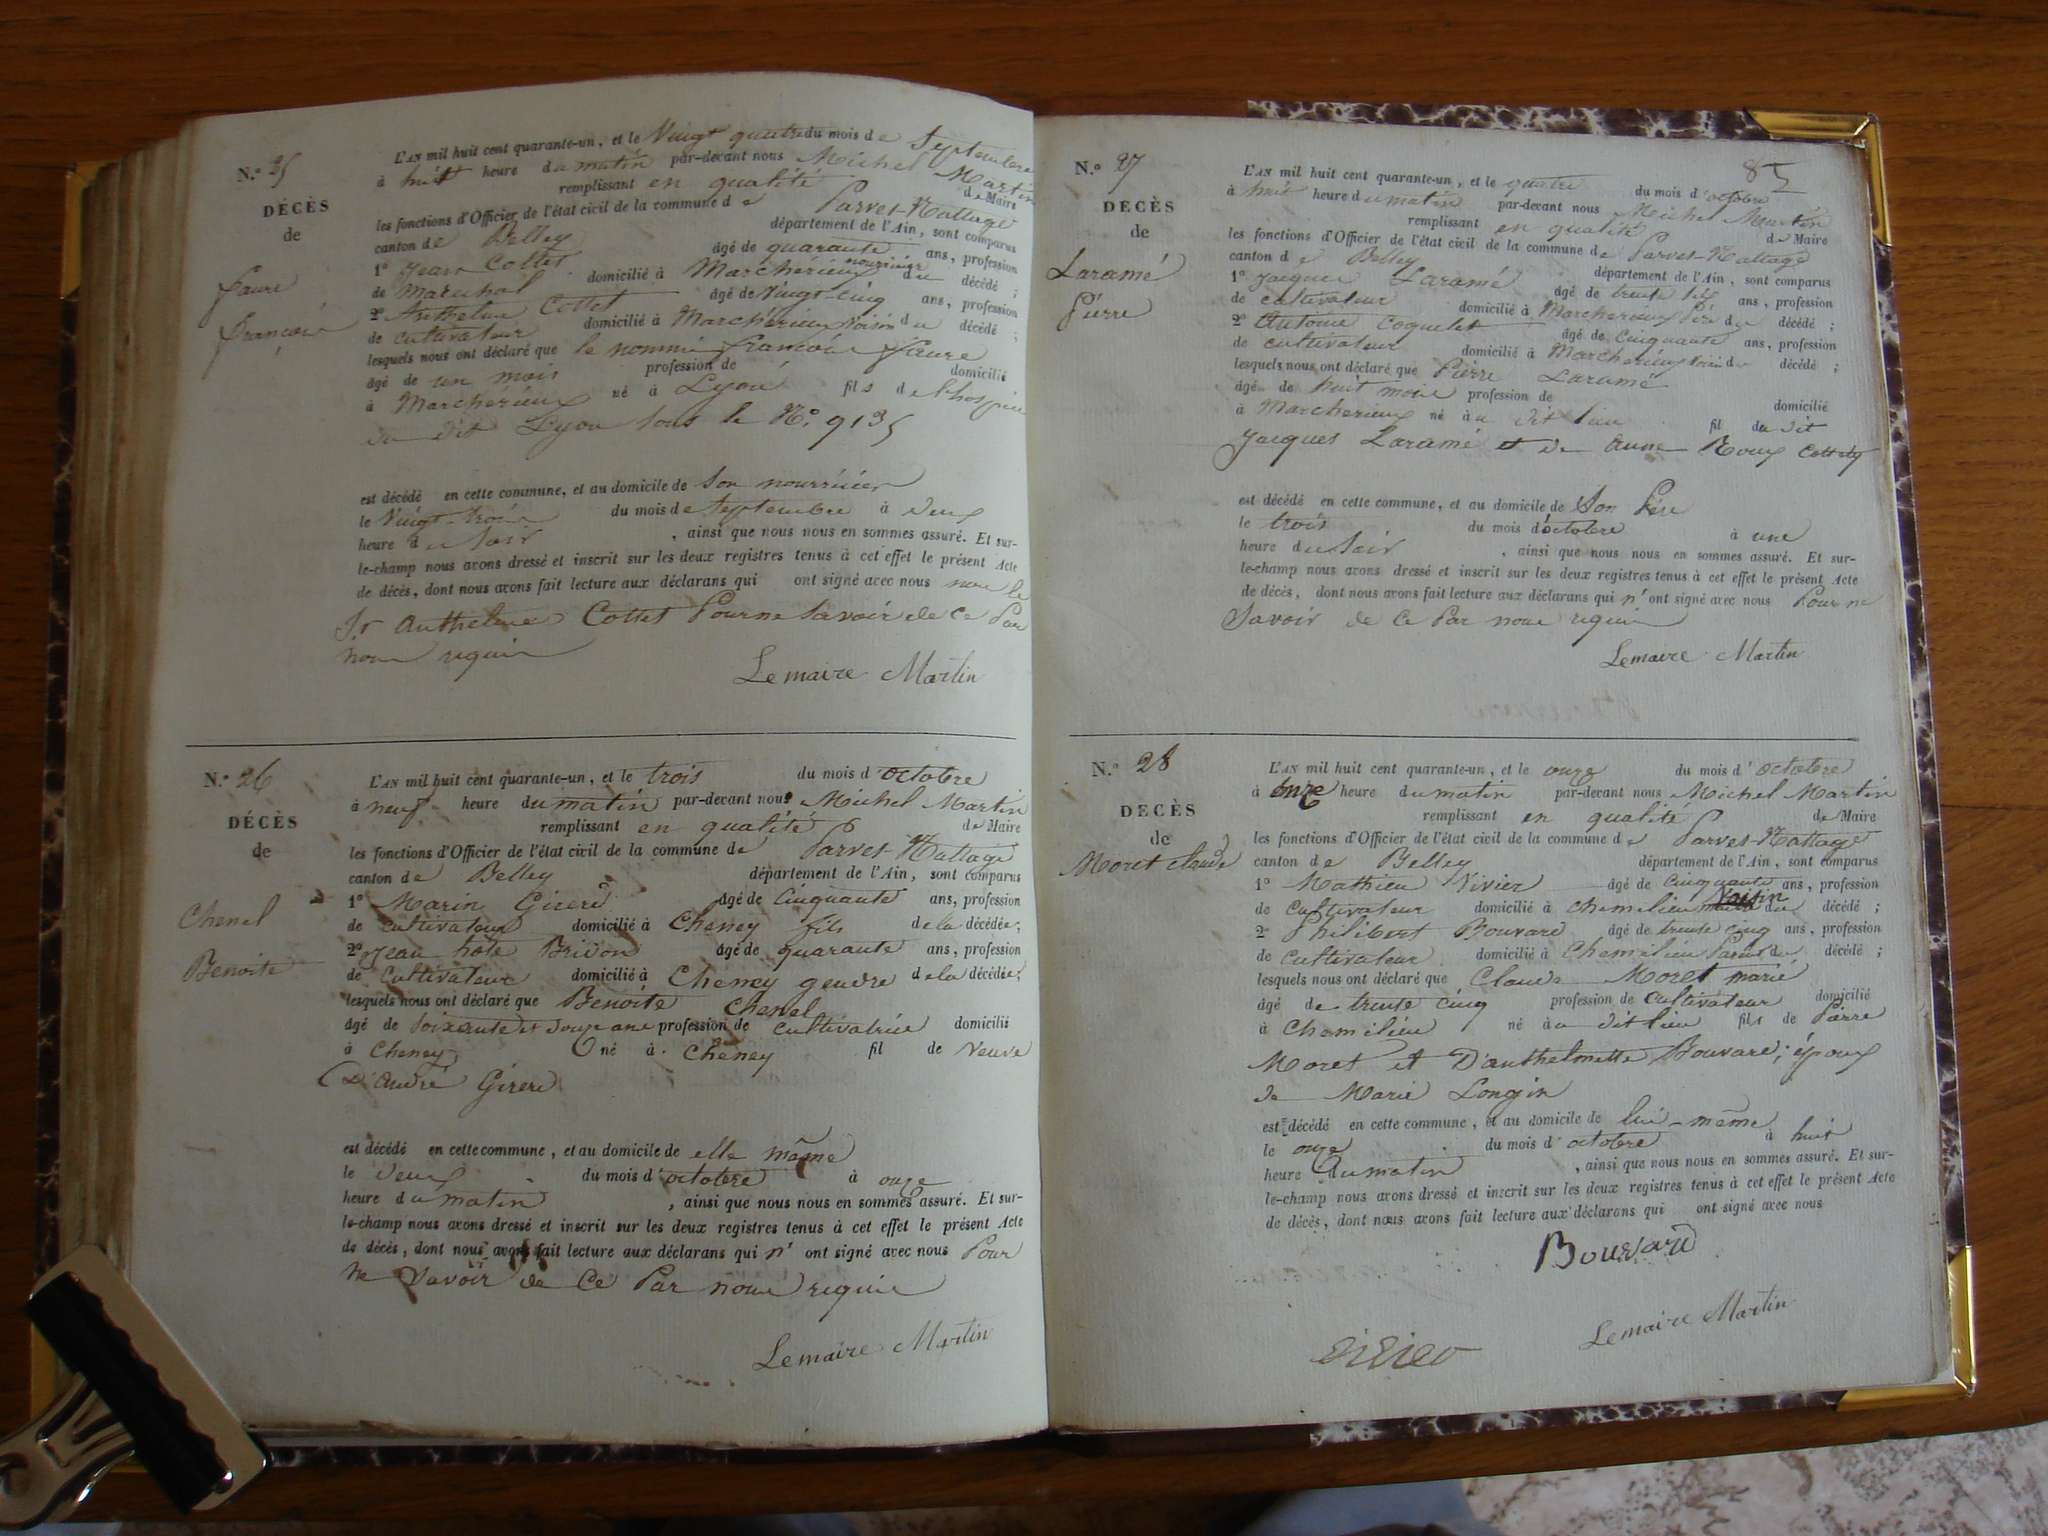 N.° 25
DÉCÈS
de
faure
françois
L'AN mil huit cent quarante-un, et le Vingt quatre du mois de Septembre
à huit heure du matin par-devant nous Michel Martin
remplissant en qualité de Maire
les fonctions d'Officier de l'état civil de la commune de Parves-Nattage
canton de Belley département de l'Ain, sont comparus
1° Jean Cottet âgé de quarante ans, profession
de Marechal domicilié à Marchérieux nourricier du décédé ;
2° Anthelme Cottet âgé de Vingt-cinq ans, profession
de cultivateur domicilié à Marchérieux Voisin du décédé ;
lesquels nous ont déclaré que le nommé françois faure
âgé de un mois profession de domicilié
à Marcherieux né à Lyon fils de l'hospice
du dit Lyon sous le N.° 9135
est décédé en cette commune, et au domicile de Son nourricier
le Vingt-trois du mois de Septembre à deux
heure du Soir , ainsi que nous nous en sommes assuré. Et sur-
le-champ nous avons dressé et inscrit sur les deux registres tenus à cet effet le présent Acte
de décès, dont nous avons fait lecture aux déclarans qui ont signé avec nous non le
Sr Anthelme Cottet Pour ne Savoir de ce Par
nous requis
Lemaire Martin
N.° 26
DÉCÈS
de
Chenel
Benoite
L'AN mil huit cent quarante-un, et le trois du mois d'octobre
à neuf heure du matin par-devant nous Michel Martin
remplissant en qualité de Maire
les fonctions d'Officier de l'état civil de la commune de Parves-Nattage
canton de Belley département de l'Ain, sont comparus
1° Marin Girerd âgé de Cinquante ans, profession
de cultivateur domicilié à Cheney fils de la décédée ;
2° Jean Bridon âgé de quarante ans, profession
de Cultivateur domicilié à Cheney gendre de la décédée ;
lesquels nous ont déclaré que Benoite Chenel
âgé de soixante et douze ans profession de cultivatrice domicilié
à Cheney né à Cheney fil de Veuve
D'André Girerd
est décédé en cette commune, et au domicile de elle même
le Deux du mois d'octobre à onze
heure du matin , ainsi que nous nous en sommes assuré. Et sur-
le-champ nous avons dressé et inscrit sur les deux registres tenus à cet effet le présent Acte
de décès, dont nous avons fait lecture aux déclarans qui n' ont signé avec nous Pour
ne Savoir de Ce Par nous requis
Lemaire Martin
85
N.° 27
DÉCÈS
de
Laramé
Pierre
L'AN mil huit cent quarante-un, et le quatre du mois d'octobre
à huit heure du matin par-devant nous Michel Martin
remplissant en qualité de Maire
les fonctions d'Officier de l'état civil de la commune de Parves-Nattage
canton de Belley département de l'Ain, sont comparus
1° Jacques Laramé âgé de trente ans, profession
de cultivateur domicilié à Marcherieux Père du décédé ;
2° Antoine Coquelet âgé de Cinquante ans, profession
de cultivateur domicilié à Marcherieux Voisin du décédé ;
lesquels nous ont déclaré que Pierre Laramé
âgé de huit mois profession de domicilié
à Marcherieux né au dit lieu fil du dit
Jacques Laramé et de Anne Roux
est décédé en cette commune, et au domicile de Son Père
le trois du mois d'octobre à une
heure du Soir , ainsi que nous nous en sommes assuré. Et sur-
le-champ nous avons dressé et inscrit sur les deux registres tenus à cet effet le présent Acte
de décès, dont nous avons fait lecture aux déclarans qui n' ont signé avec nous Pour ne
Savoir de Ce Par nous requis
Lemaire Martin
N.° 28
DÉCÈS
de
Moret Claude
L'AN mil huit cent quarante-un, et le onze du mois d'octobre
à onze heure du matin par-devant nous Michel Martin
remplissant en qualité de Maire
les fonctions d'Officier de l'état civil de la commune de Parves-Nattage
canton de Belley département de l'Ain, sont comparus
1° Mathieu Vivier âgé de cinquante ans, profession
de Cultivateur domicilié à Chemilieu Voisin du décédé ;
2° Philibert Bouvard âgé de trente cinq ans, profession
de cultivateur domicilié à Chemilieu Parent du décédé ;
lesquels nous ont déclaré que Claude Moret marié
âgé de trente cinq profession de Cultivateur domicilié
à Chemilieu né au dit lieu fils de Pierre
Moret et D'anthelmette Bouvard ; époux
de Marie Longin
est décédé en cette commune, et au domicile de lui-même
le onze du mois d'octobre à huit
heure du matin , ainsi que nous nous en sommes assuré. Et sur-
le-champ nous avons dressé et inscrit sur les deux registres tenus à cet effet le présent Acte
de décès, dont nous avons fait lecture aux déclarans qui ont signé avec nous
Bouvard
Lemaire Martin